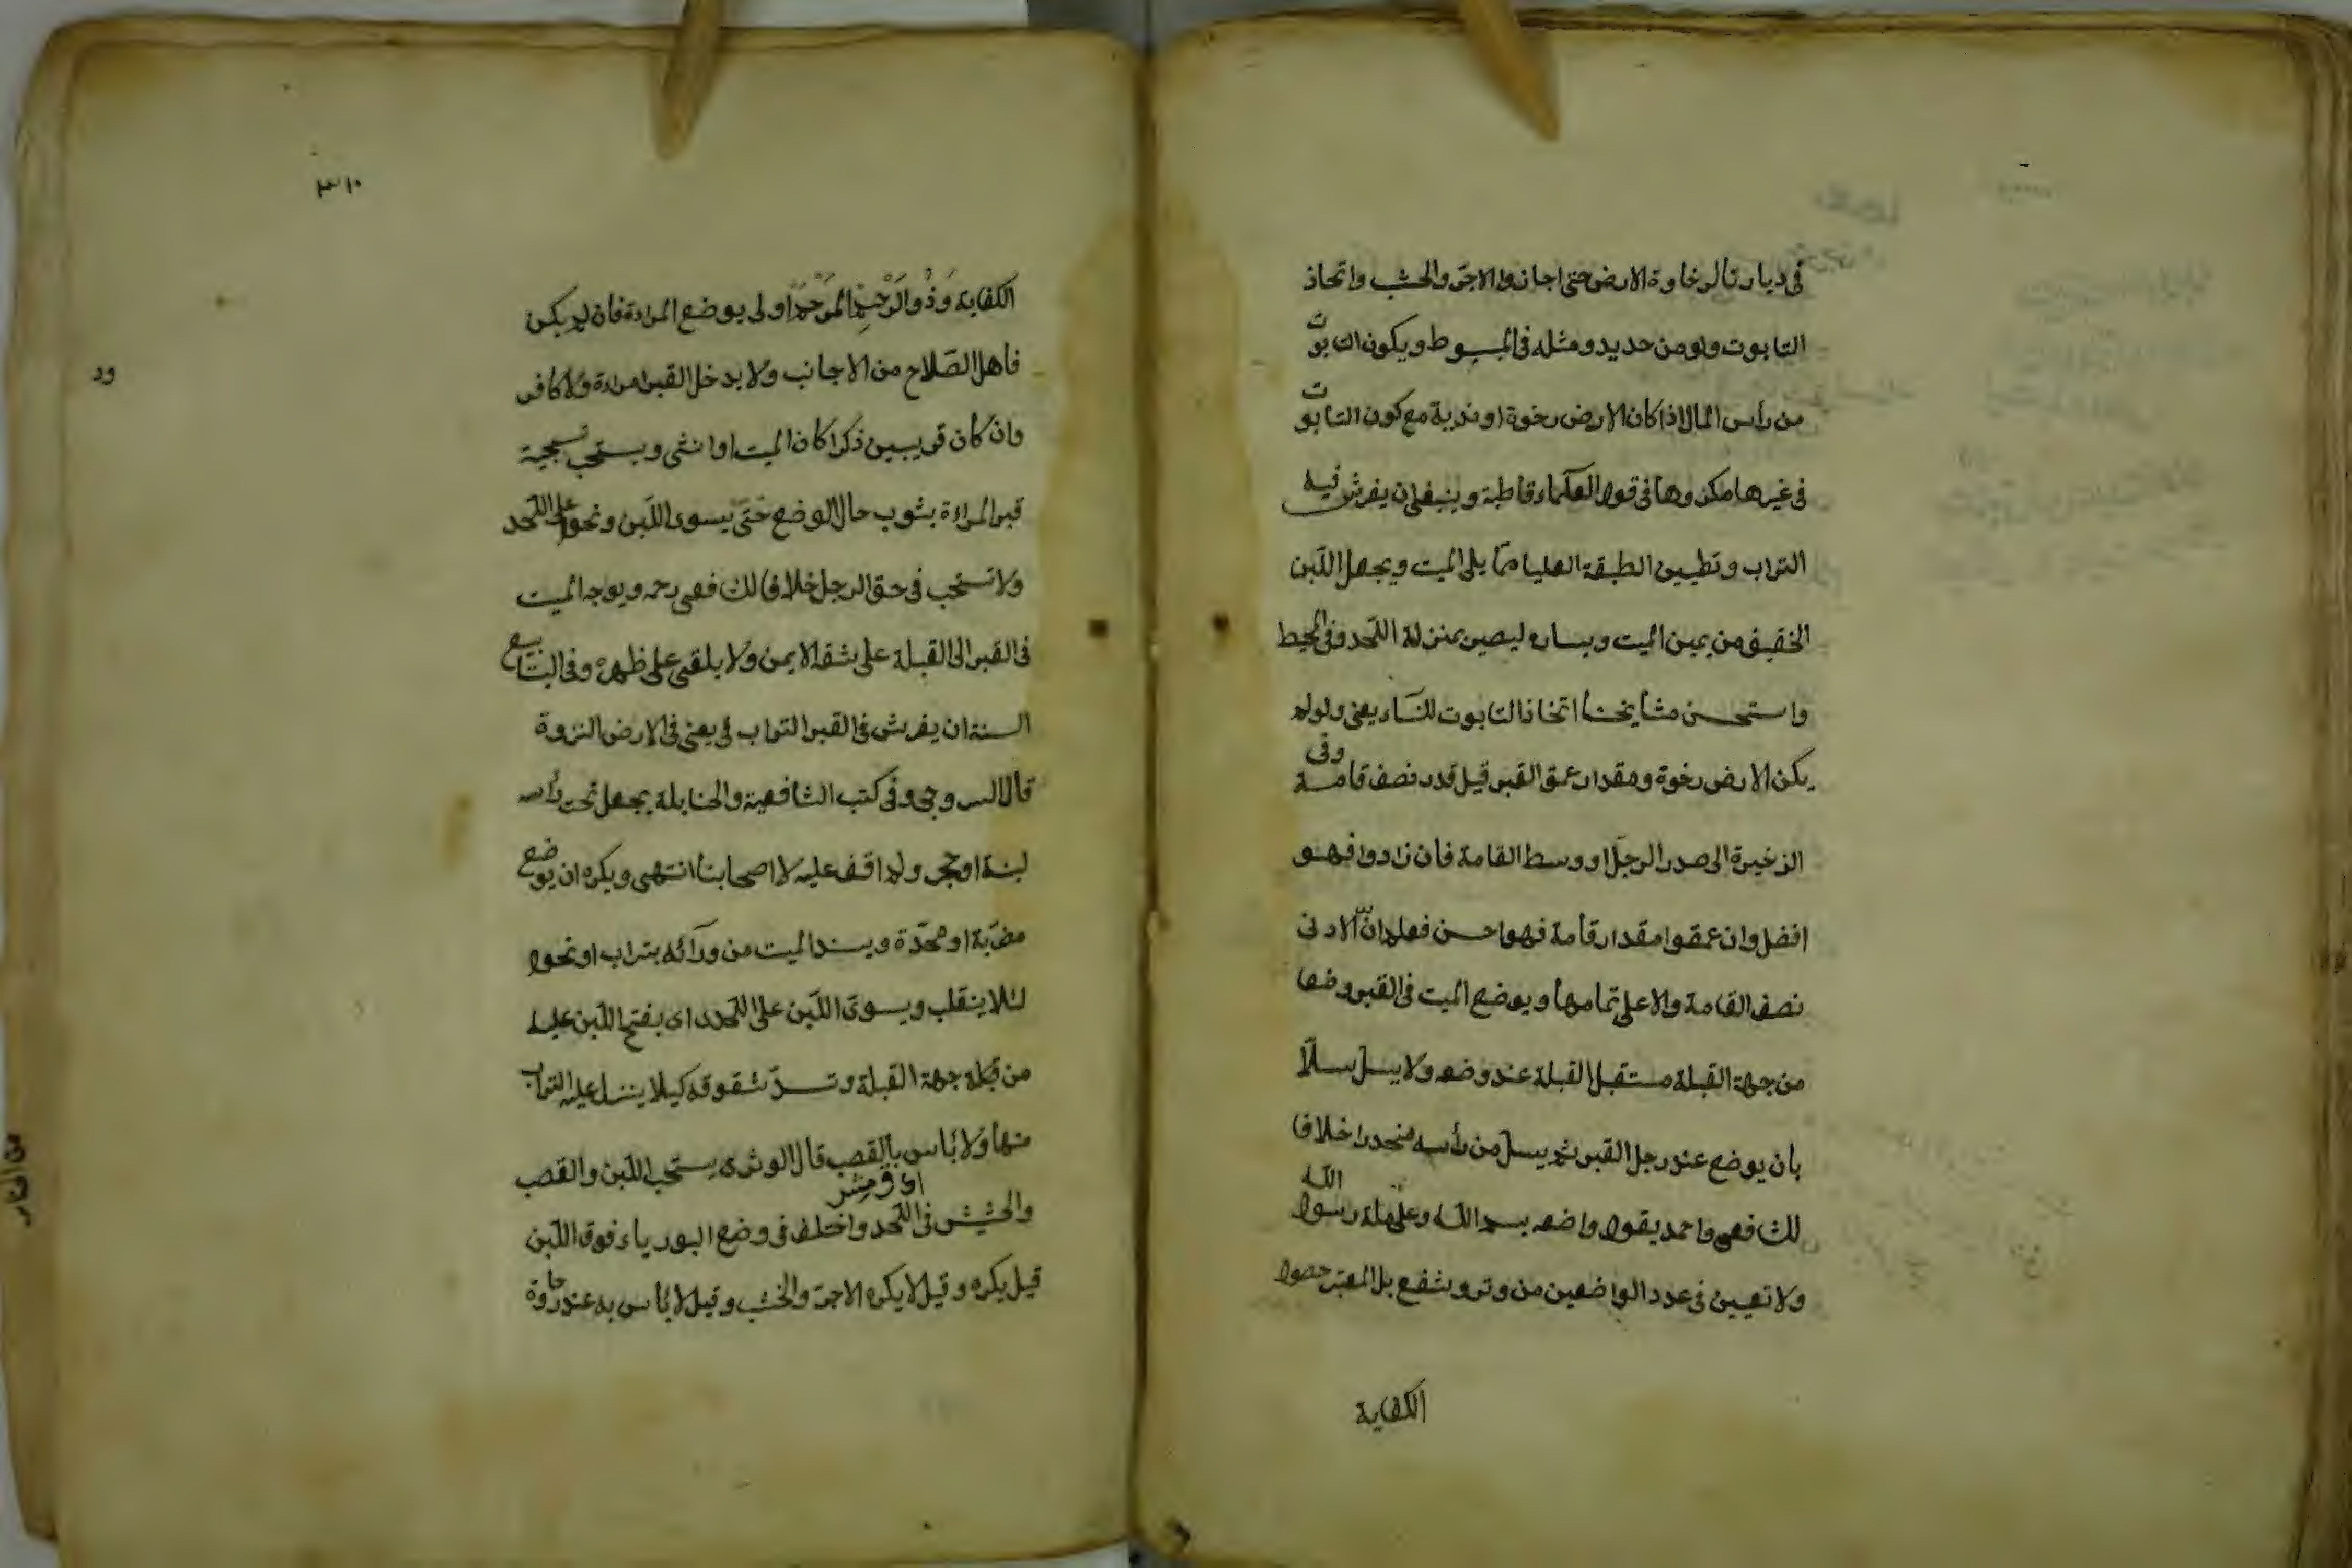 في ديارنا لرخاوة الارض حتى اجازوا الاجر والخشب واتخاذ
التابوت ولو من حديد ومثله في المبسوط ويكون التابوت
من رأس المال اذا كان الارض رخوة او ندية مع كون التابوت
في غيرها مكروها في قول العلماء قاطبة وينبغي ان يفرش فيه
التراب وتطيين الطبقة العليا مما يلي الميت ويجعل اللبن
الخفيف من يمين الميت ويساره ليصير بمنزلة اللحد وفي المحيط
واستحسن مشايخنا اتخاذ التابوت للنساء يعني ولو لم
يكن الارض رخوة ومقدار عمق القبر قيل قدر نصف قامة وفي
الذخيرة الى صدر الرجل او وسط القامة فان زادوا فهو
افضل وان عمقوا مقدار قامة فهو احسن فعلم ان الادنى
نصف القامة والاعلى تمامها ويوضع الميت في القبر وضعا
من جهة القبلة مستقبل القبلة عند وضعه ولا يسل سلا
بان يوضع عند رجل القبر ثم يسل من رأسه منحدرا خلافا
لك فعي واحمد يقول واضعه بسم الله وعلى ملة رسول الله
ولا تعيين في عدد الواضعين من وتر وشفع بل المعتبر حصول
الكفاية
٣١٠
الكفاية وَذُو الرَّحْمِ الْمَرْحَمُ اولى بوضع المراءة فان لم يكن
فاهل الصلاح من الاجانب ولا يدخل القبر امراءة ولا كافر
وان كان قريبين ذكرا كان الميت او انثى ويستحب تسجية
قبر المراءة بثوب حال الوضع حتى يسوى اللبن ونحوه على اللحد
ولا تستحب في حق الرجل خلافا لك فعي رحمه ويوجه الميت
في القبر الى القبلة على شقه الايمن ولا يلقى على ظهره وفي الينابيع
السنة ان يفرش في القبر التراب في يعني في الارض النزوة
قال السروجي وفي كتب الشافعية والحنابلة يجعل تحت رأسه
لبنة او حجر ولم اقف عليه لاصحابنا انتهى ويكره ان يوضع
مضربة او مخدة ويسند الميت من ورائه بتراب او نحوه
لئلا ينقلب ويسوى اللبن على اللحد اى يفتح اللبن عليه
من قبله جهة القبلة وتسد شقوقه كيلا ينزل عليه التراب
منها ولا بأس بالقصب قال الوشرى يستحب اللبن والقصب
والحشيش في اللحد واختلف في وضع البورياء فوق اللبن
قيل يكره وقيل لا يكره الاجر والخشب وقيل لا بأس به عند رخاوة